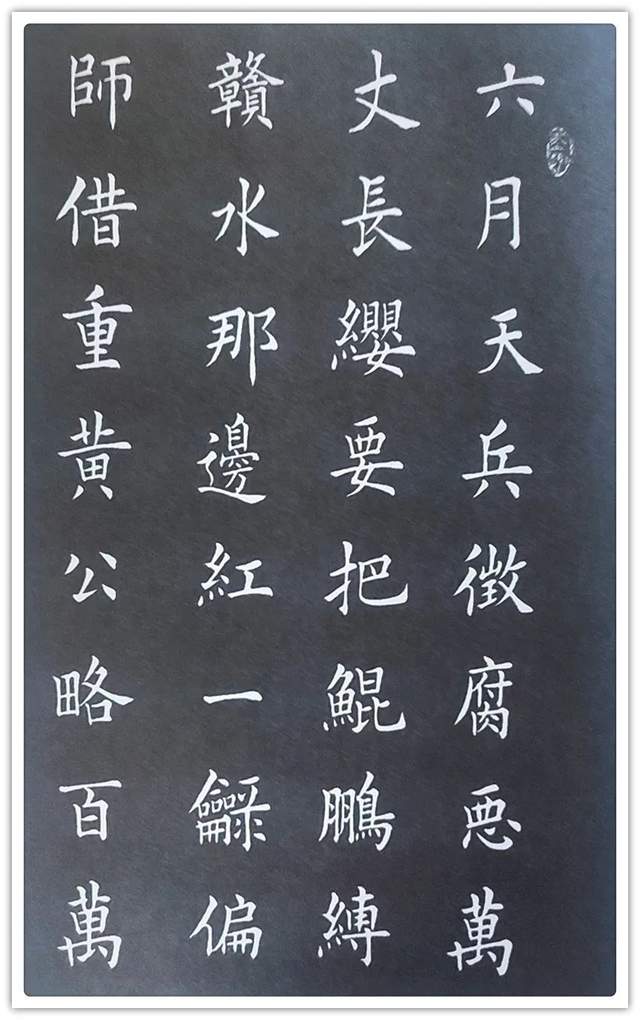 六月天兵徵腐惡萬
丈長纓要把鯤鵬縛
贛水那邊紅一龢偏
師借重黃公略百萬